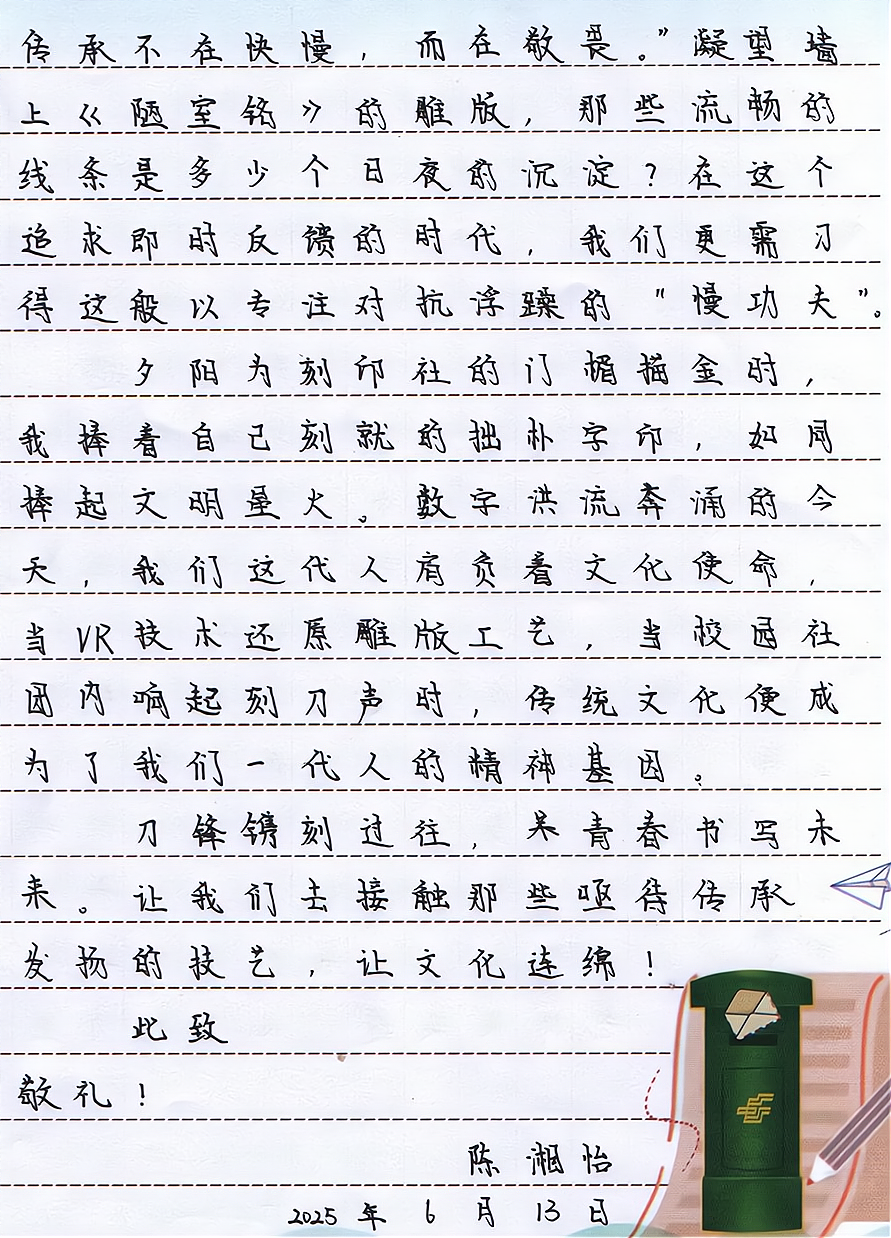 传承不在快慢，而在敬畏。”凝望墙
上《陋室铭》的雕版，那些流畅的
线条是多少个日夜的沉淀？在这个
追求即时反馈的时代，我们更需习
得这般以专注对抗浮躁的“慢功夫”。
夕阳为刻印社的门楣描金时，
我捧着自己刻就的拙朴字印，如同
捧起文明星火。数字洪流奔涌的今
天，我们这代人肩负着文化使命，
当VR技术还原雕版工艺，当校园社
团内响起刻刀声时，传统文化便成
为了我们一代人的精神基因。
刀锋镌刻过往，青春书写未
来。让我们去接触那些亟待传承
发扬的技艺，让文化连绵！
此致
敬礼！
陈湘怡
2025年6月13日